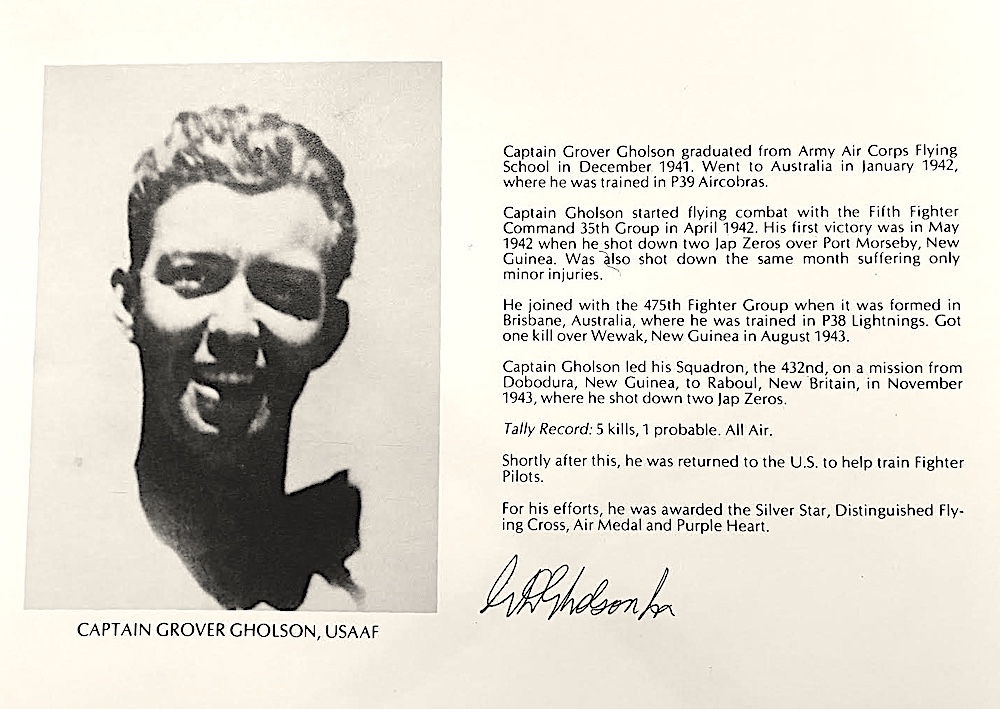 Captain Grover Gholson graduated from Army Air Corps Flying
School in December 1941. Went to Australia in January 1942,
where he was trained in P39 Aircobras.
Captain Gholson started flying combat with the Fifth Fighter
Command 35th Group in April 1942. His first victory was in May
1942 when he shot down two Jap Zeros over Port Morseby, New
Guinea. Was also shot down the same month suffering only
minor injuries.
He joined with the 475th Fighter Group when it was formed in
Brisbane, Australia, where he was trained in P38 Lightnings. Got
one kill over Wewak, New Guinea in August 1943.
Captain Gholson led his Squadron, the 432nd, on a mission from
Dobodura, New Guinea, to Raboul, New Britain, in November
1943, where he shot down two Jap Zeros.
Tally Record: 5 kills, 1 probable. All Air.
Shortly after this, he was returned to the U.S. to help train Fighter
Pilots.
For his efforts, he was awarded the Silver Star, Distinguished Fly-
ing Cross, Air Medal and Purple Heart.
Gholson Jr
CAPTAIN GROVER GHOLSON, USAAF